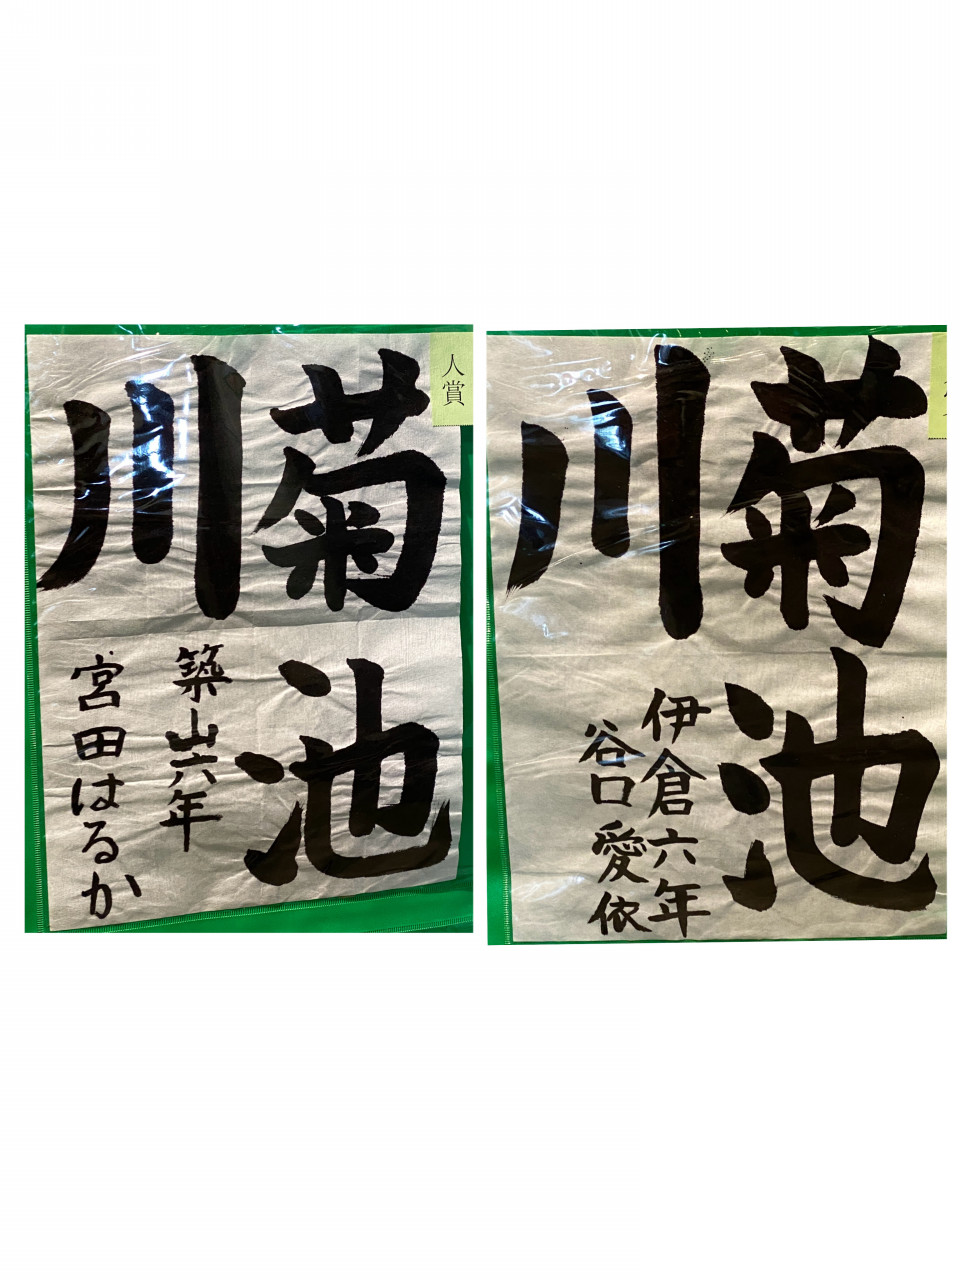 人賞
菊池
川
築山六年
宮田はるか
菊池
川
伊倉六年
谷口愛依